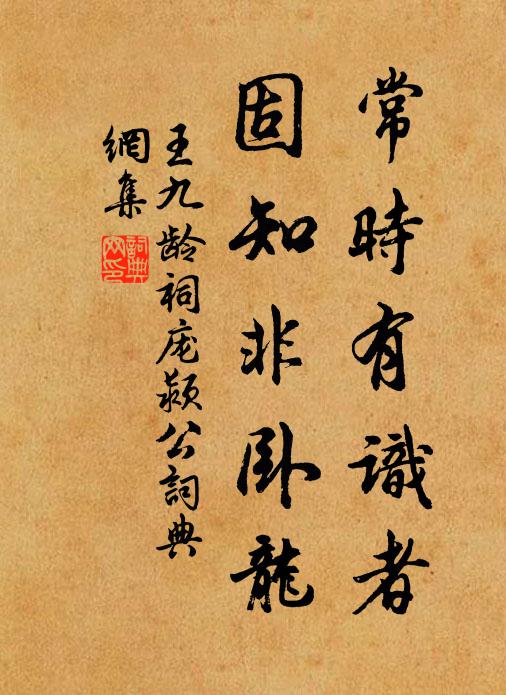 常時有識者
固知非臥龍
王九龄祠庞颍公詞典
網集
詞典
网印